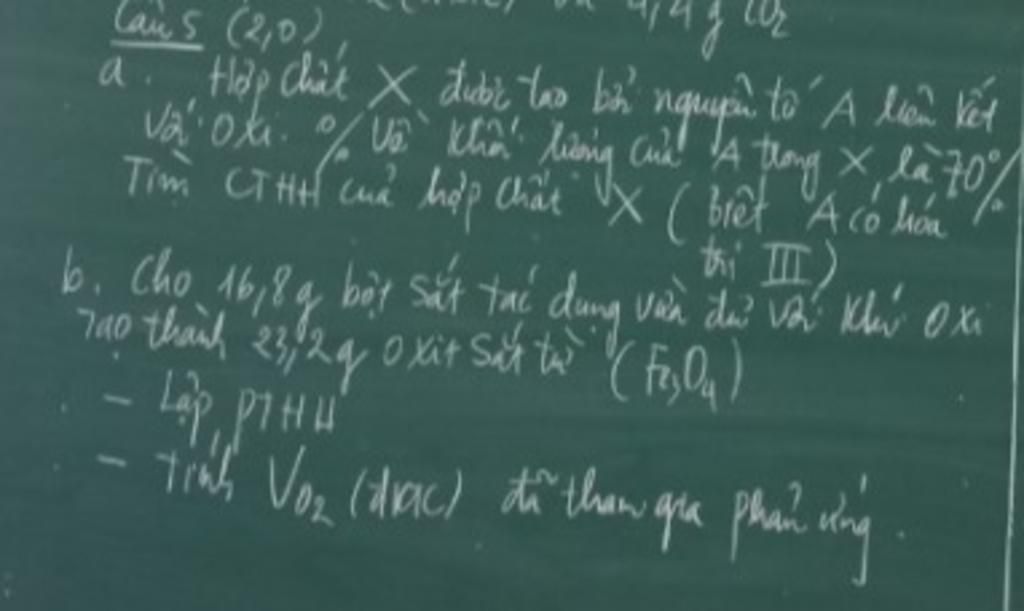 4,4 g CO2
Câu 5 (2,0)
a. Hợp chất X được tạo bởi nguyên tố A liên kết
với oxi. % về khối lượng của A trong X là 70%
Tìm CTHH của hợp chất X ( biết A có hóa
trị III )
b. Cho 16,8g bột sắt tác dụng vừa đủ với khí oxi
Tạo thành 23,2g oxit sắt từ (Fe3O4)
- Lập PTHH
- Tính VO2 (đktc) đã tham gia phản ứng.